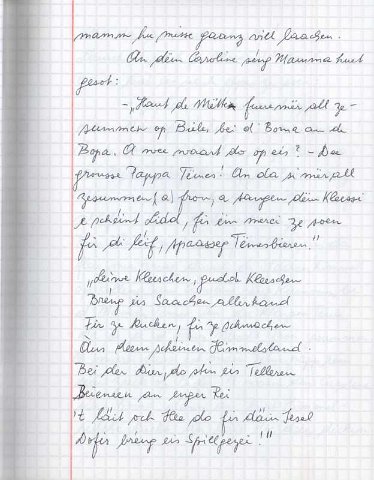 mamm hu misse gaanz vill laachen.
An dëm Caroline séng Mamma huet
gesot:
-„Haut de Mëtteg fuere mir all ze-
summen op Bieles bei d'Boma an de
Bopa. A wee waart do op eis? - Dee
grousse Pappa Témes! An da si mir all
zesummen (a) frou, a sangen dëm Kleessi
e schéint Lidd, fir ëm merci ze soen
fir di léif, spaasseg Témesbieren."
„Léiwe Kleeschen, gudde Kleeschen
Bréng eis Saachen allerhand
Fir ze kucken, fir ze schmaachen
Aus deem schéinen Himmelsland.
Bei der Dier, do stin eis Telleren
Beieneen an enger Rei
't läit och Hee do fir däin Iesel
Dofir bréng eis Spillgezei!"